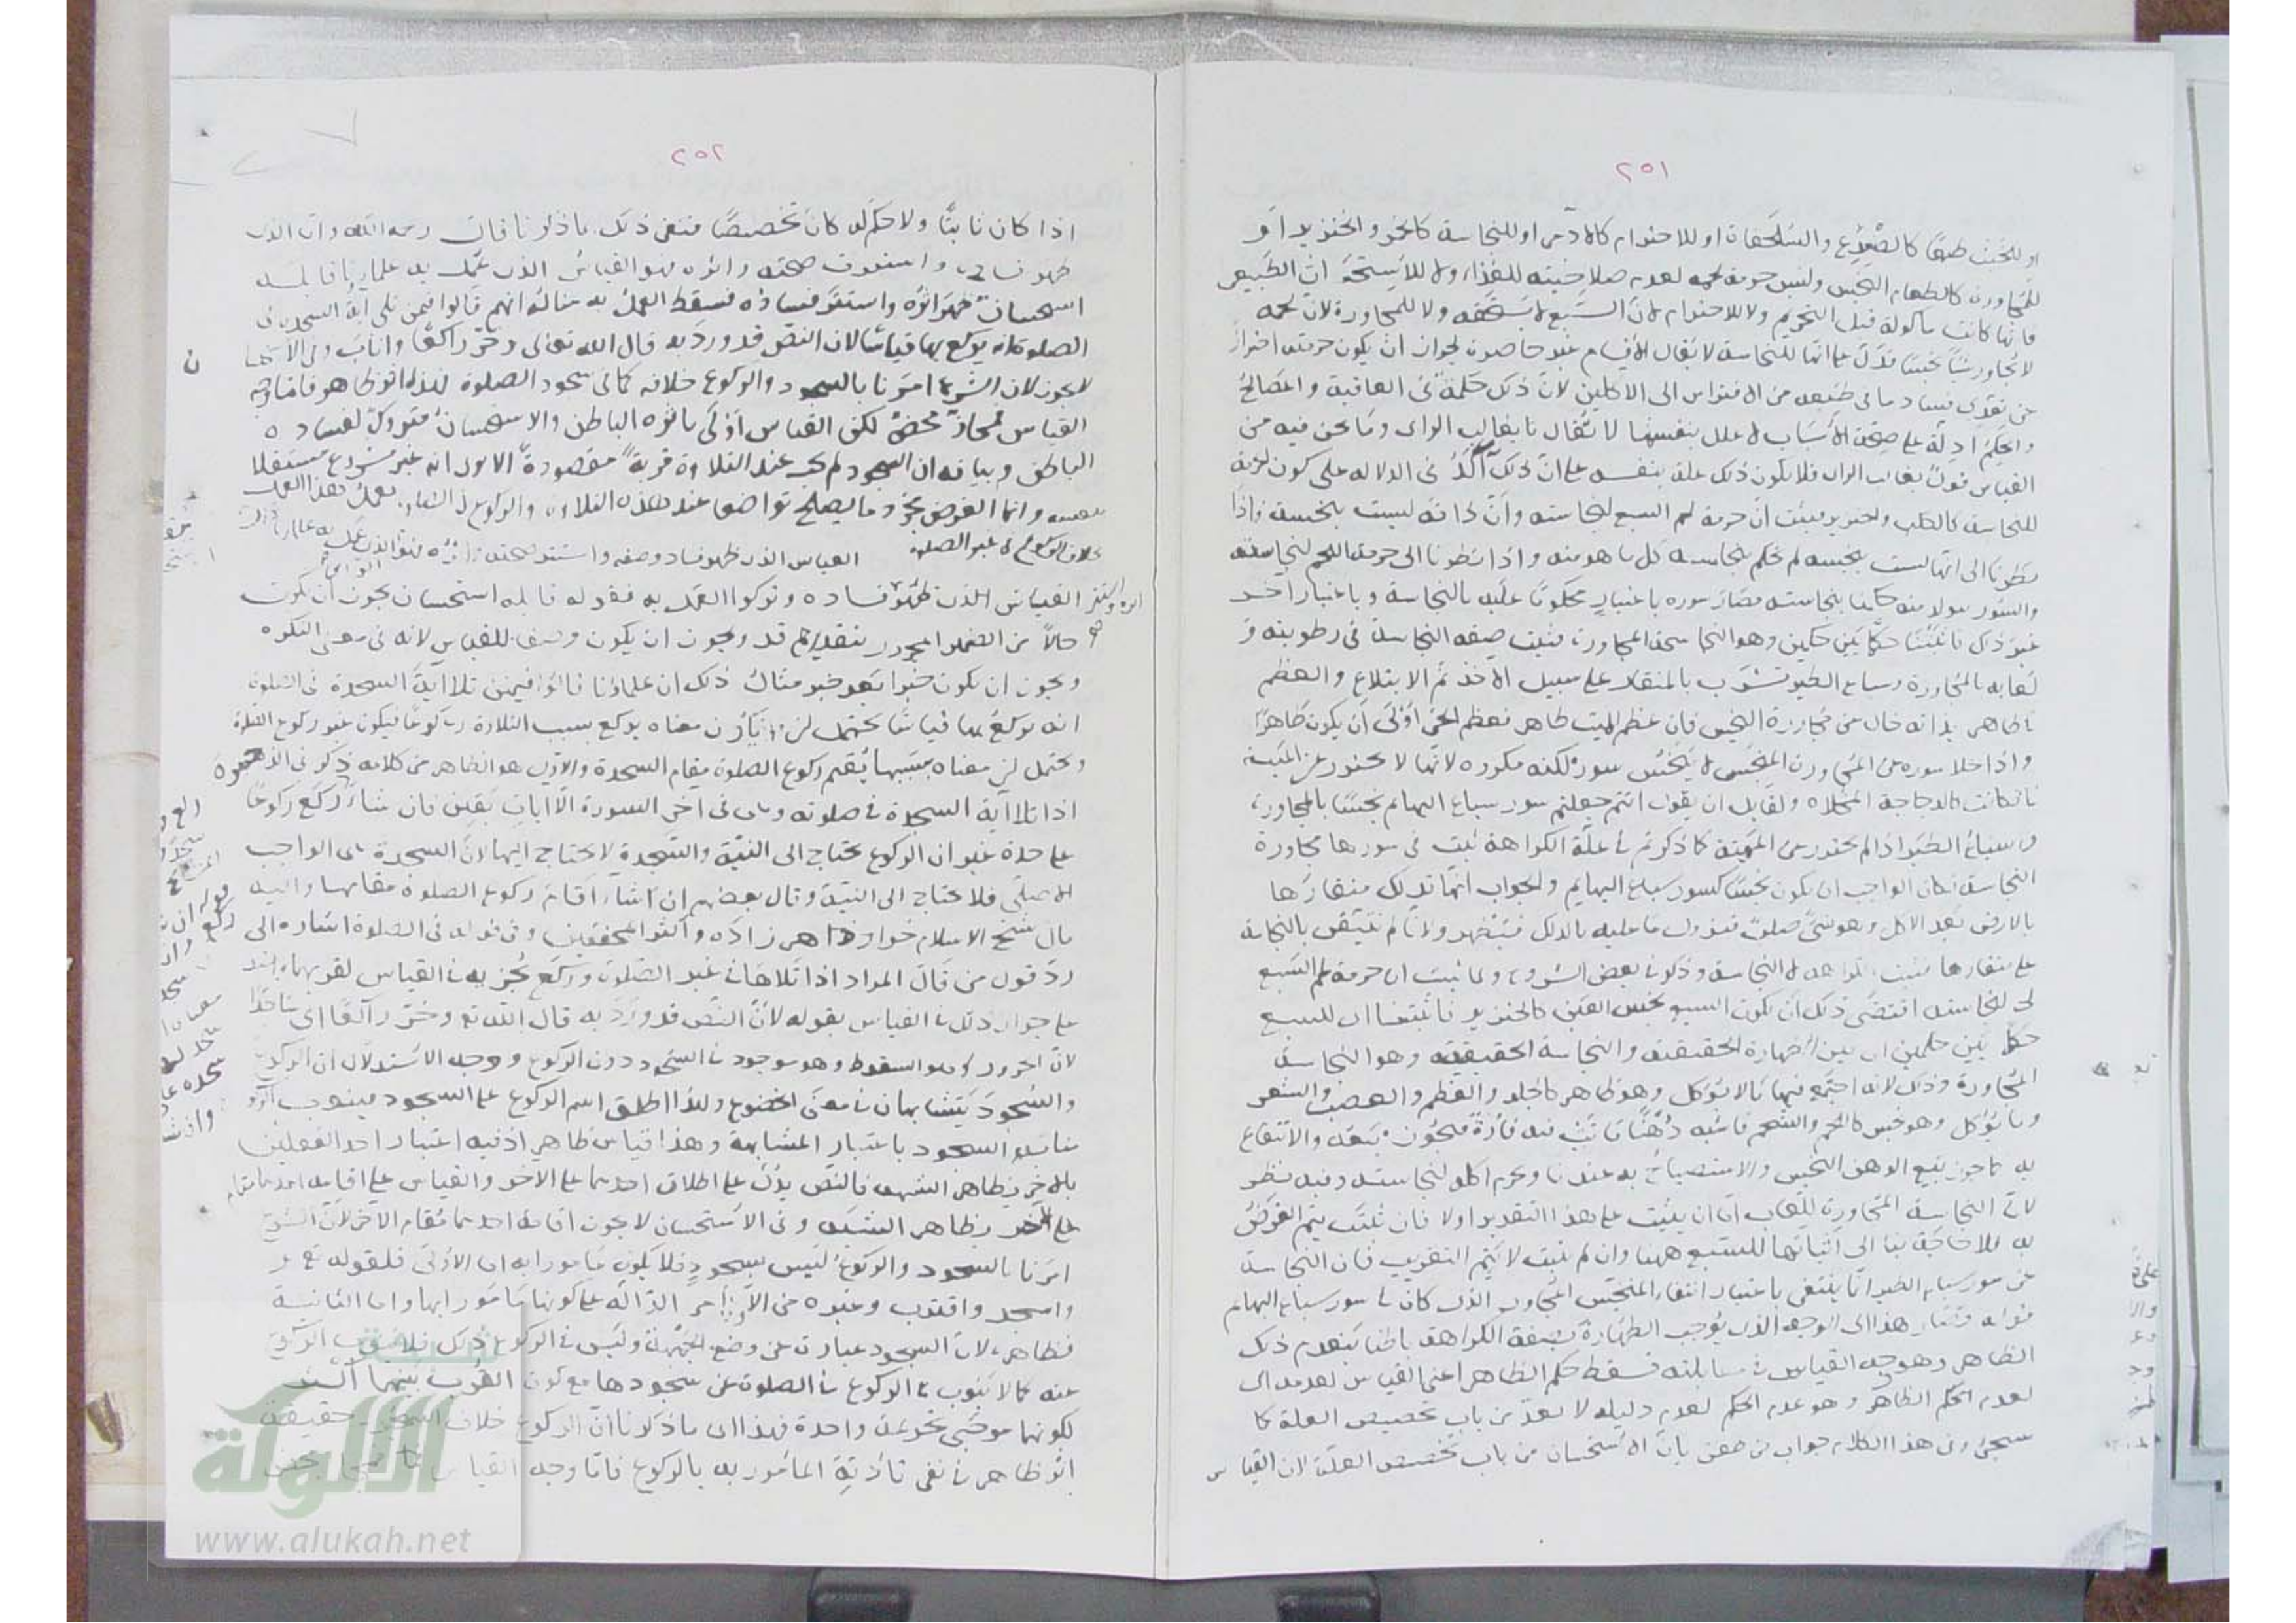 ٢٥١
او للخبث طبعًا كالضفدع والسلحفاة او للاحترام كالآدمى او للنجاسة كالخمر والخنزير او
للمجاورة كالطعام النجس وليس حرمة لحمه لعدم صلاحيته للغذاء ولا للاستخبا ان الطبيعى
فانها كانت مأكولة قبل التحريم ولا للاحترام لان السبع لا يستحقه ولا للمجاورة لان لحمه
لا يجاور شيئًا نجسًا فدل على انها للنجاسة لا يقال الاقسام غير حاصرة لجواز ان يكون حرمته احترازًا
عن تعدى فساد ما فى طبعه من الافتراس الى الاكلين لان ذلك حكمة فى العاقبة والمصالح
والحكم ادلة على صحة الاسباب لا علل بنفسها لا تقال بغالب الراى وما نحن فيه من
القياس قول بغالب الراى فلا يكون ذلك علة بنفسه على ان ذلك آكد فى الدلالة على كون لحمه
للنجاسة كالكلب والخنزير فثبت ان حرمة لحم السبع لنجاسته وان ذاته ليست بنجسة واذا
نظرنا الى انها ليست بنجسة لم نحكم بنجاسة كل ما هو منه واذا نظرنا الى حرمة اللحم لنجاسته
والسور متولد منه حكمنا بنجاسته فصار سوره باعتبار محكومًا عليه بالنجاسة وباعتبار آخر
غير ذلك فاثبتنا حكمًا بين حكمين وهو النجاسة المجاورة فثبت صفة النجاسة فى رطوبته و
لعابه بالمجاورة وسباع الطير تشرب بالمنقار على سبيل الاخذ ثم الابتلاع والعظم
طاهر بذاته خال عن مجاورة النجس فان عظم الميت طاهر فعظم الحى اولى ان يكون طاهرًا
واذا خلا سوره عن المجاورة النجس لا يتنجس سوره لكنه مكروه لانها لا تحترز عن الميتة
فكانت كالدجاجة المخلاة ولقايل ان يقول انتم جعلتم سور سباع البهايم نجسًا بالمجاورة
وسباع الطير اذا لم تحترز عن الميتة كما ذكرتم فى علة الكراهة ثبت فى سورها مجاورة
النجاسة فكان الواجب ان يكون نجسًا كسور سباع البهايم والجواب انها تدلك منقارها
بالارض بعد الاكل وهو شئ صلب فيزول ما عليه بالدلك فيطهر ولانا لم نتيقن بالنجاسة
على منقارها فثبت الكراهة لا النجاسة وذكر فى بعض الشروح ولما ثبت ان حرمة لحم السبع
لنجاسته اقتضى ذلك ان يكون السبع نجس العين كالخنزير فاثبتنا اى للسبع
حكمًا بين حكمين اى بين الطهارة الحقيقية والنجاسة الحقيقية وهو النجاسة
المجاورة وذلك لانه اجتمع فيها ما لا يؤكل وهو طاهر كالجلد والعظم والعصب والشعر
وما يؤكل وهو نجس كاللحم والشحم فاشبه دهنًا ماتت فيه فارة فيجوز بيعه والانتفاع
به كما يجوز بيع الدهن النجس والاستصباح به عندنا وحرم اكله لنجاسته وفيه نظر
لان النجاسة المجاورة للعاب اما ان يثبت على هذا التقدير اولا فان ثبت يتم الغرض
به فلا حاجة بنا الى اثباتها للسبع ههنا وان لم يثبت لا يتم التقريب فان النجاسة
عن سور سباع الطير انما ينتفى باعتبار انتفاء المنجس المجاور الذى كان فى سور سباع البهايم
قوله وصار هذا اى الوجه الذى يوجب الطهارة بصفة الكراهة باطنا ينعدم ذلك
الظاهر وهو وجه القياس فى مقابلته فسقط حكم الظاهر اعنى القياس لعدمه اى
لعدم الحكم الظاهر وهو عدم الحكم لعدم دليله لا يعد من باب تخصيص العلة كما
سيجئ وفى هذا الكلام جواب من طعن بان الاستحسان من باب تخصيص العلة لان القياس
٢٥٢
اذا كان ثابتًا ولا حكم له كان تخصيصًا فنفى ذلك بما ذكرنا قال رحمه الله واما الذى
ظهر فساده واستترت صحته واثره فهو القياس الذى عمل به علماؤنا قابله
استحسان ظهر اثره واستتر فساده فسقط العمل به مثاله انهم قالوا فيمن تلى آية السجدة فى
الصلوة انه يركع بها قياسًا لان النص قد ورد به قال الله تعالى وخر راكعًا واناب وفى الاستحسان
لا يجوز لان الشرع امرنا بالسجود والركوع خلافه كما فى سجود الصلوة فهذا اثر ظاهر فاما وجه
القياس فمجاز محض لكن القياس اولى باثره الباطن والاستحسان متروك لفساده
الباطن وبيانه ان السجود لم يجب عند التلاوة قربة مقصودة الا يرى انه غير مشروع مستقلا
بنفسه وانما الغرض مجرد ما يصلح تواضعا عند هذه التلاوة والركوع فى الصلوة يعمل هذا العمل
بخلاف الركوع فى غير الصلوة القياس الذى ظهر فساد وصفه واستتر صحته واثره فهو الذى عمل به علماؤنا
القياس الذى ظهر فساده وتركوا العمل به فقوله قابله استحسان يجوز ان يكون
حالاً من الضمير المجرور بتقدير قد ويجوز ان يكون وصفا للقياس لانه فى معنى النكرة
ويجوز ان يكون خبرا بعد خبر مثال ذلك ان علماؤنا قالوا فيمن تلا آية السجدة فى الصلوة
انه يركع بها قياسًا يحتمل ان يكون معناه يركع بسبب التلاوة ركوعًا فيكون غير ركوع الصلوة
ويحتمل ان معناه بسببها يقيم ركوع الصلوة مقام السجدة والاول هو الظاهر من كلامه ذكر فى الذخيرة
اذا تلا آية السجدة فى صلوته وهى فى آخر السورة الا آيات بقين فان شاء ركع ركوعًا
على حدة غير ان الركوع يحتاج الى النية والسجدة لا يحتاج اليها لان السجدة هى الواجب
الاصلى فلا يحتاج الى النية وقال بعضهم ان شاء اقام ركوع الصلوة مقامها واليه
مال شيخ الاسلام خواهر زاده واكثر المحققين وفى قوله فى الصلوة اشارة الى
رد قول من قال المراد اذا تلاها فى غير الصلوة وركع يجزيه فى القياس لقربهما
على جواز ذلك فى القياس بقوله لان النص قد ورد به قال الله تع وخر راكعًا اى ساقطا
لان الخرور هو السقوط وهو موجود فى السجود دون الركوع ووجه الاستدلال ان الركوع
والسجود يتشابهان فى معنى الخضوع ولهذا اطلق اسم الركوع على السجود فينوب
مناب السجود باعتبار المشابهة وهذا قياس ظاهر اذ فيه اعتبار احد الفعلين
بالاخر بظاهر الشبه فالنص يدل على اطلاق احدهما على الآخر والقياس على اقامة احدهما مقام
الآخر بظاهر الشبه وفى الاستحسان لا يجوز اقامة احدهما مقام الآخر لان الشرع
امرنا بالسجود والركوع ليس بسجود فلا يكون مأمورا به اما الاولى فلقوله تع
واسجد واقترب وغيره من الاوامر الدالة على كونها مأمورا بها واما الثانية
فظاهر لان السجود عبارة عن وضع الجبهة وليس فى الركوع ذلك فلا ينوب الركوع
عنه كما لا ينوب الركوع فى الصلوة عن سجودها مع كون القرب بينهما اكثر
لكونهما موجبى تحريمة واحدة فهذا اى ما ذكرنا ان الركوع خلاف السجود حقيقة
اثر ظاهر فى نفى تادية المأمور به بالركوع فاما وجه القياس فمجاز محض
www.alukah.net
الألوكة
شبكة